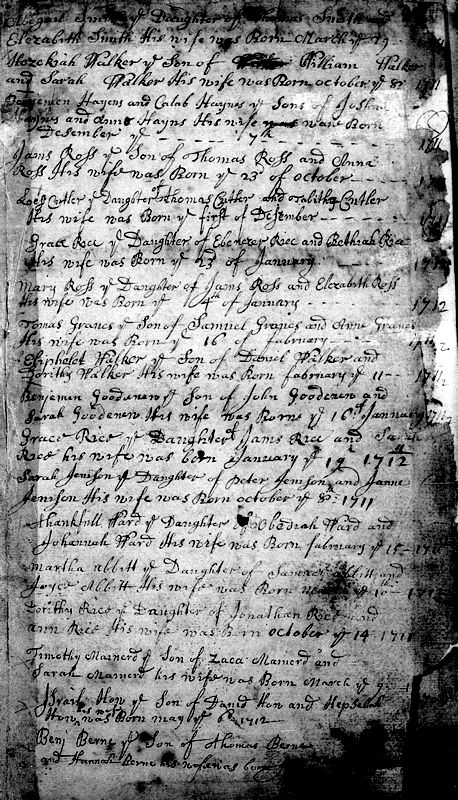 Abegail Smith ye Daughter of Thomas Smith and
Elezabeth Smith His wife was Born March ye 29
Hezekiah Walker ye Son of William Walker
and Sarah Walker His wife was Born october ye 8th 1711
Benjemen Hayens and Calab Hayns ye Sons of
Haynes and Anne Hayns His wife ware Born
Desember ye 7th 1711
Jams Ross ye Son of Thomas Ross and Anna
Ross His wife was Born ye 23 of october
Loes Cutler ye Daughter of Thomas Cutler and Tabitha Cutler
His wife was Born ye first of Desember 1711
Grace Rice ye Daughter of Ebenezer Rice and Bethiah Rice
His wife was Born ye 23 of January 1712
Mary Ross ye Daughter of Jams Ross and Elezabeth Ross
His wife was Born ye 4th of January 1712
Tomas Graues ye Son of Samuel Graues and Anne Graues
His wife was Born ye 16 of fabruary 1711/2
Eliphelet Walker ye Son of Daniel Walker and
Dorithy Walker His wife was Born fabruary ye 11 1711/2
Benjemen Goodenew ye Son of John Goodenew and
Sarah Goodenew His wife was Borne ye 16th January 1711/2
Grace Rice ye Daughter of Jams Rice and Sarah
Rice his wife was born January ye 19 1711/12
Sarah Jenison ye Daughter of Peter Jenison and Jane
Jenison His wife was Born october ye 8th 1711
Thankfull Ward ye Daughter of Obediah Ward and
Johannah Ward His wife was Born fabruary ye 15
Martha abbitt ye Daughter of Abbitt and
Joyce Abbitt His wife was Born ye 10th 1712
Dorithy Rice ye Daughter of Jonathan Rice and
ann Rice His wife was Born october ye 14 1711
Timothy Mainerd ye Son of Zaca Mainerd and
Sarah Mainerd his wife was Born March ye 9
Jsrail How ye Son of David How and Hepsebah
How his wife was Born may ye 6th 1712
Benj Berne ye Son of Thomas Berne
and Hannah Berne his wife was born